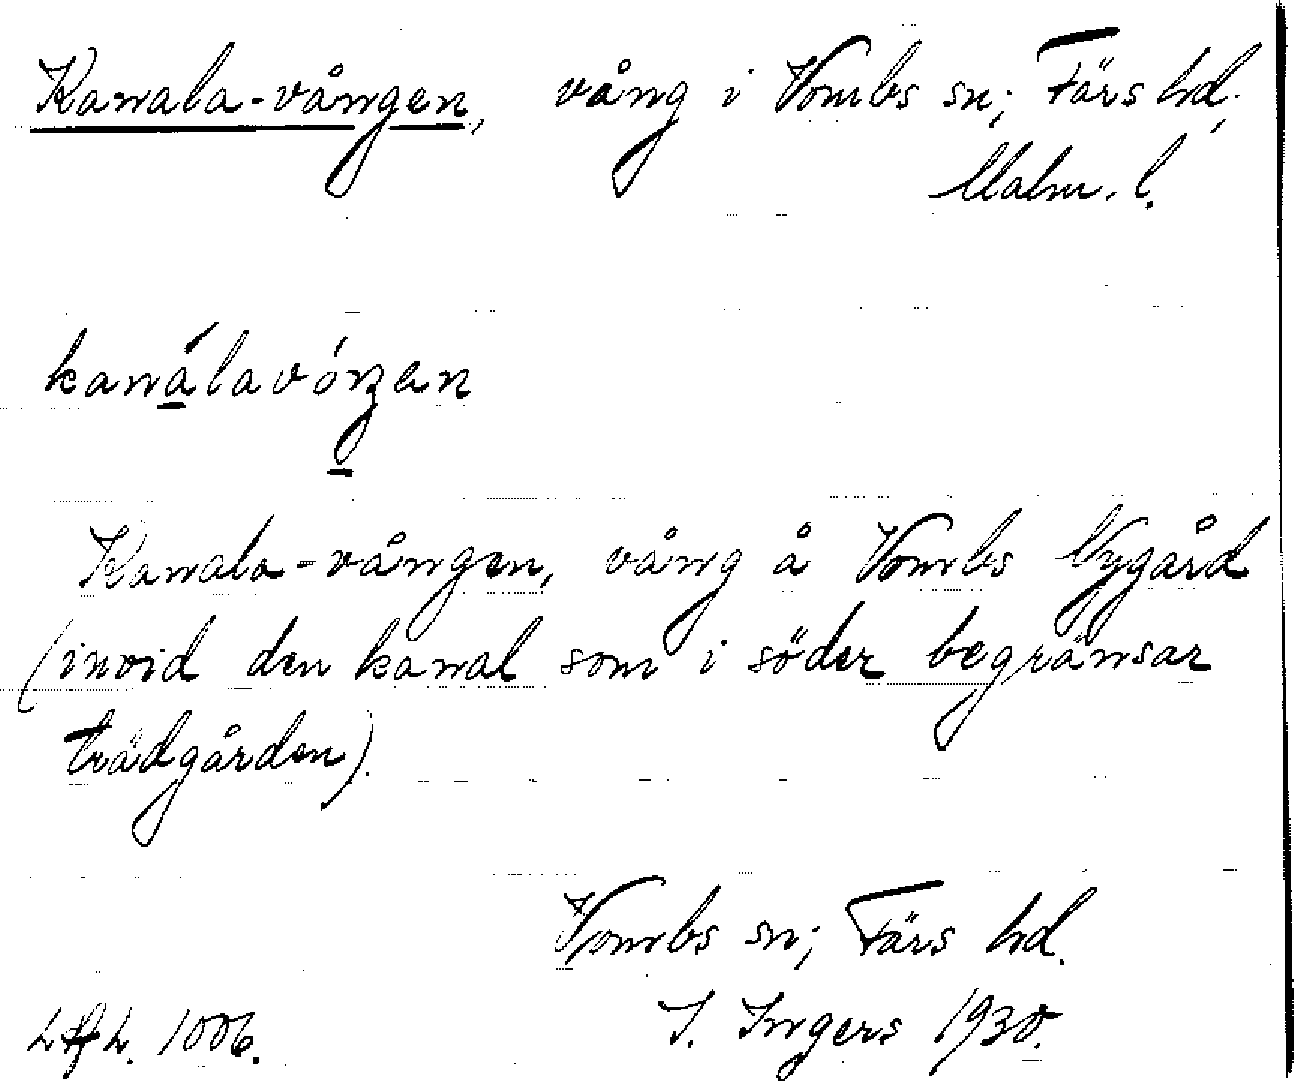 Kanala-vången, vång i Vombs sn; Färs hd.
Malm. l.
kanálavóŋen
Kanala-vången, vång å Vombs Nygård
(invid den kanal som i söder begränsar
trädgården).
Vombs sn; Färs hd.
1006. I. Ingers 1930.